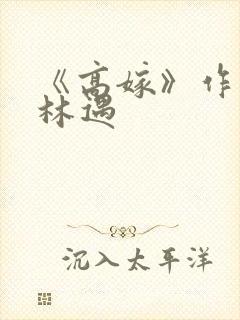 《高嫁》作
林遇
沉入太平洋